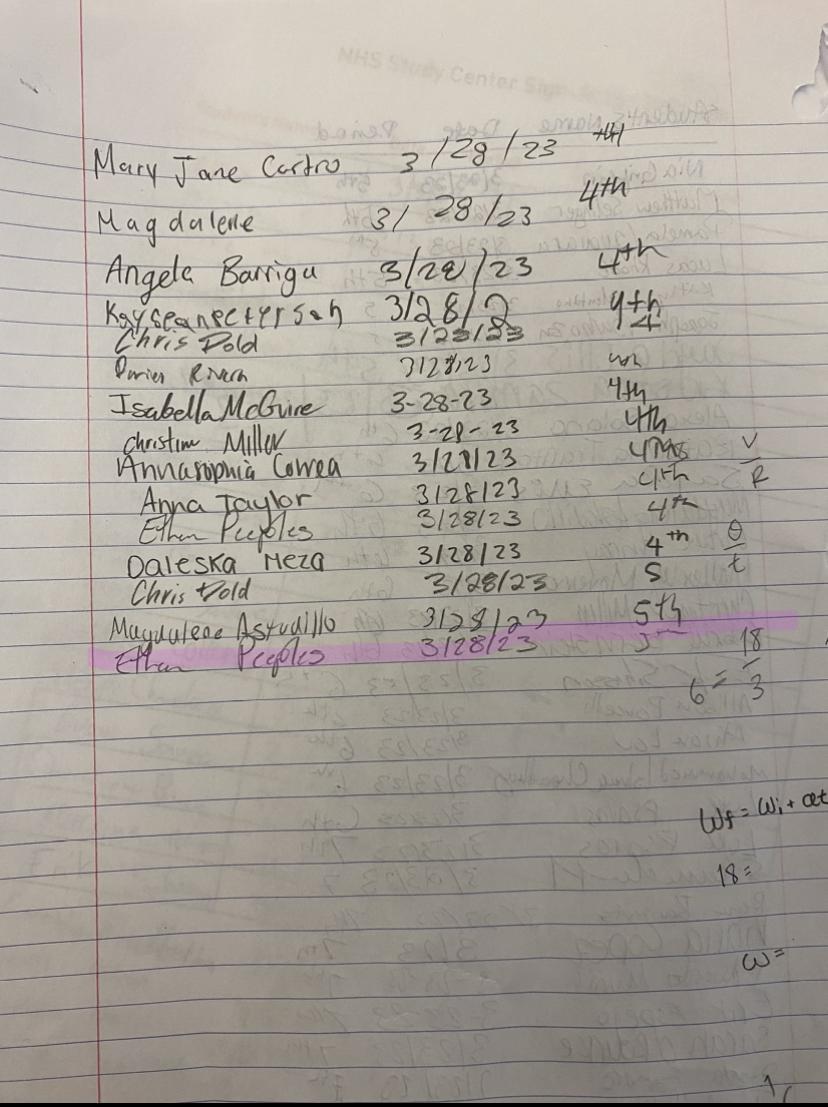 Mary Jane Castro 3/28/23 4th
Magdalene 3/28/23 4th
Angela Barriga 3/28/23 4th
3/28/2 4th
Chris Dold 3/28/23 4
Rivera 3/28/23
Isabella McGuire 3-28-23 4th
christine Miller 3-28-23 4th
Annasophia Correa 3/28/23
V
R
Anna Taylor 3/28/23 4th
Ethan Peeples 3/28/23 4th
Daleska Meza 3/28/23 4th
θ
t
Chris Dold 3/28/23 5
Magdalene Astudillo 3/28/23 5th
Ethan Peeples 3/28/23 5
6 = 18
3
ωf = ωi + αt
18 =
ω =